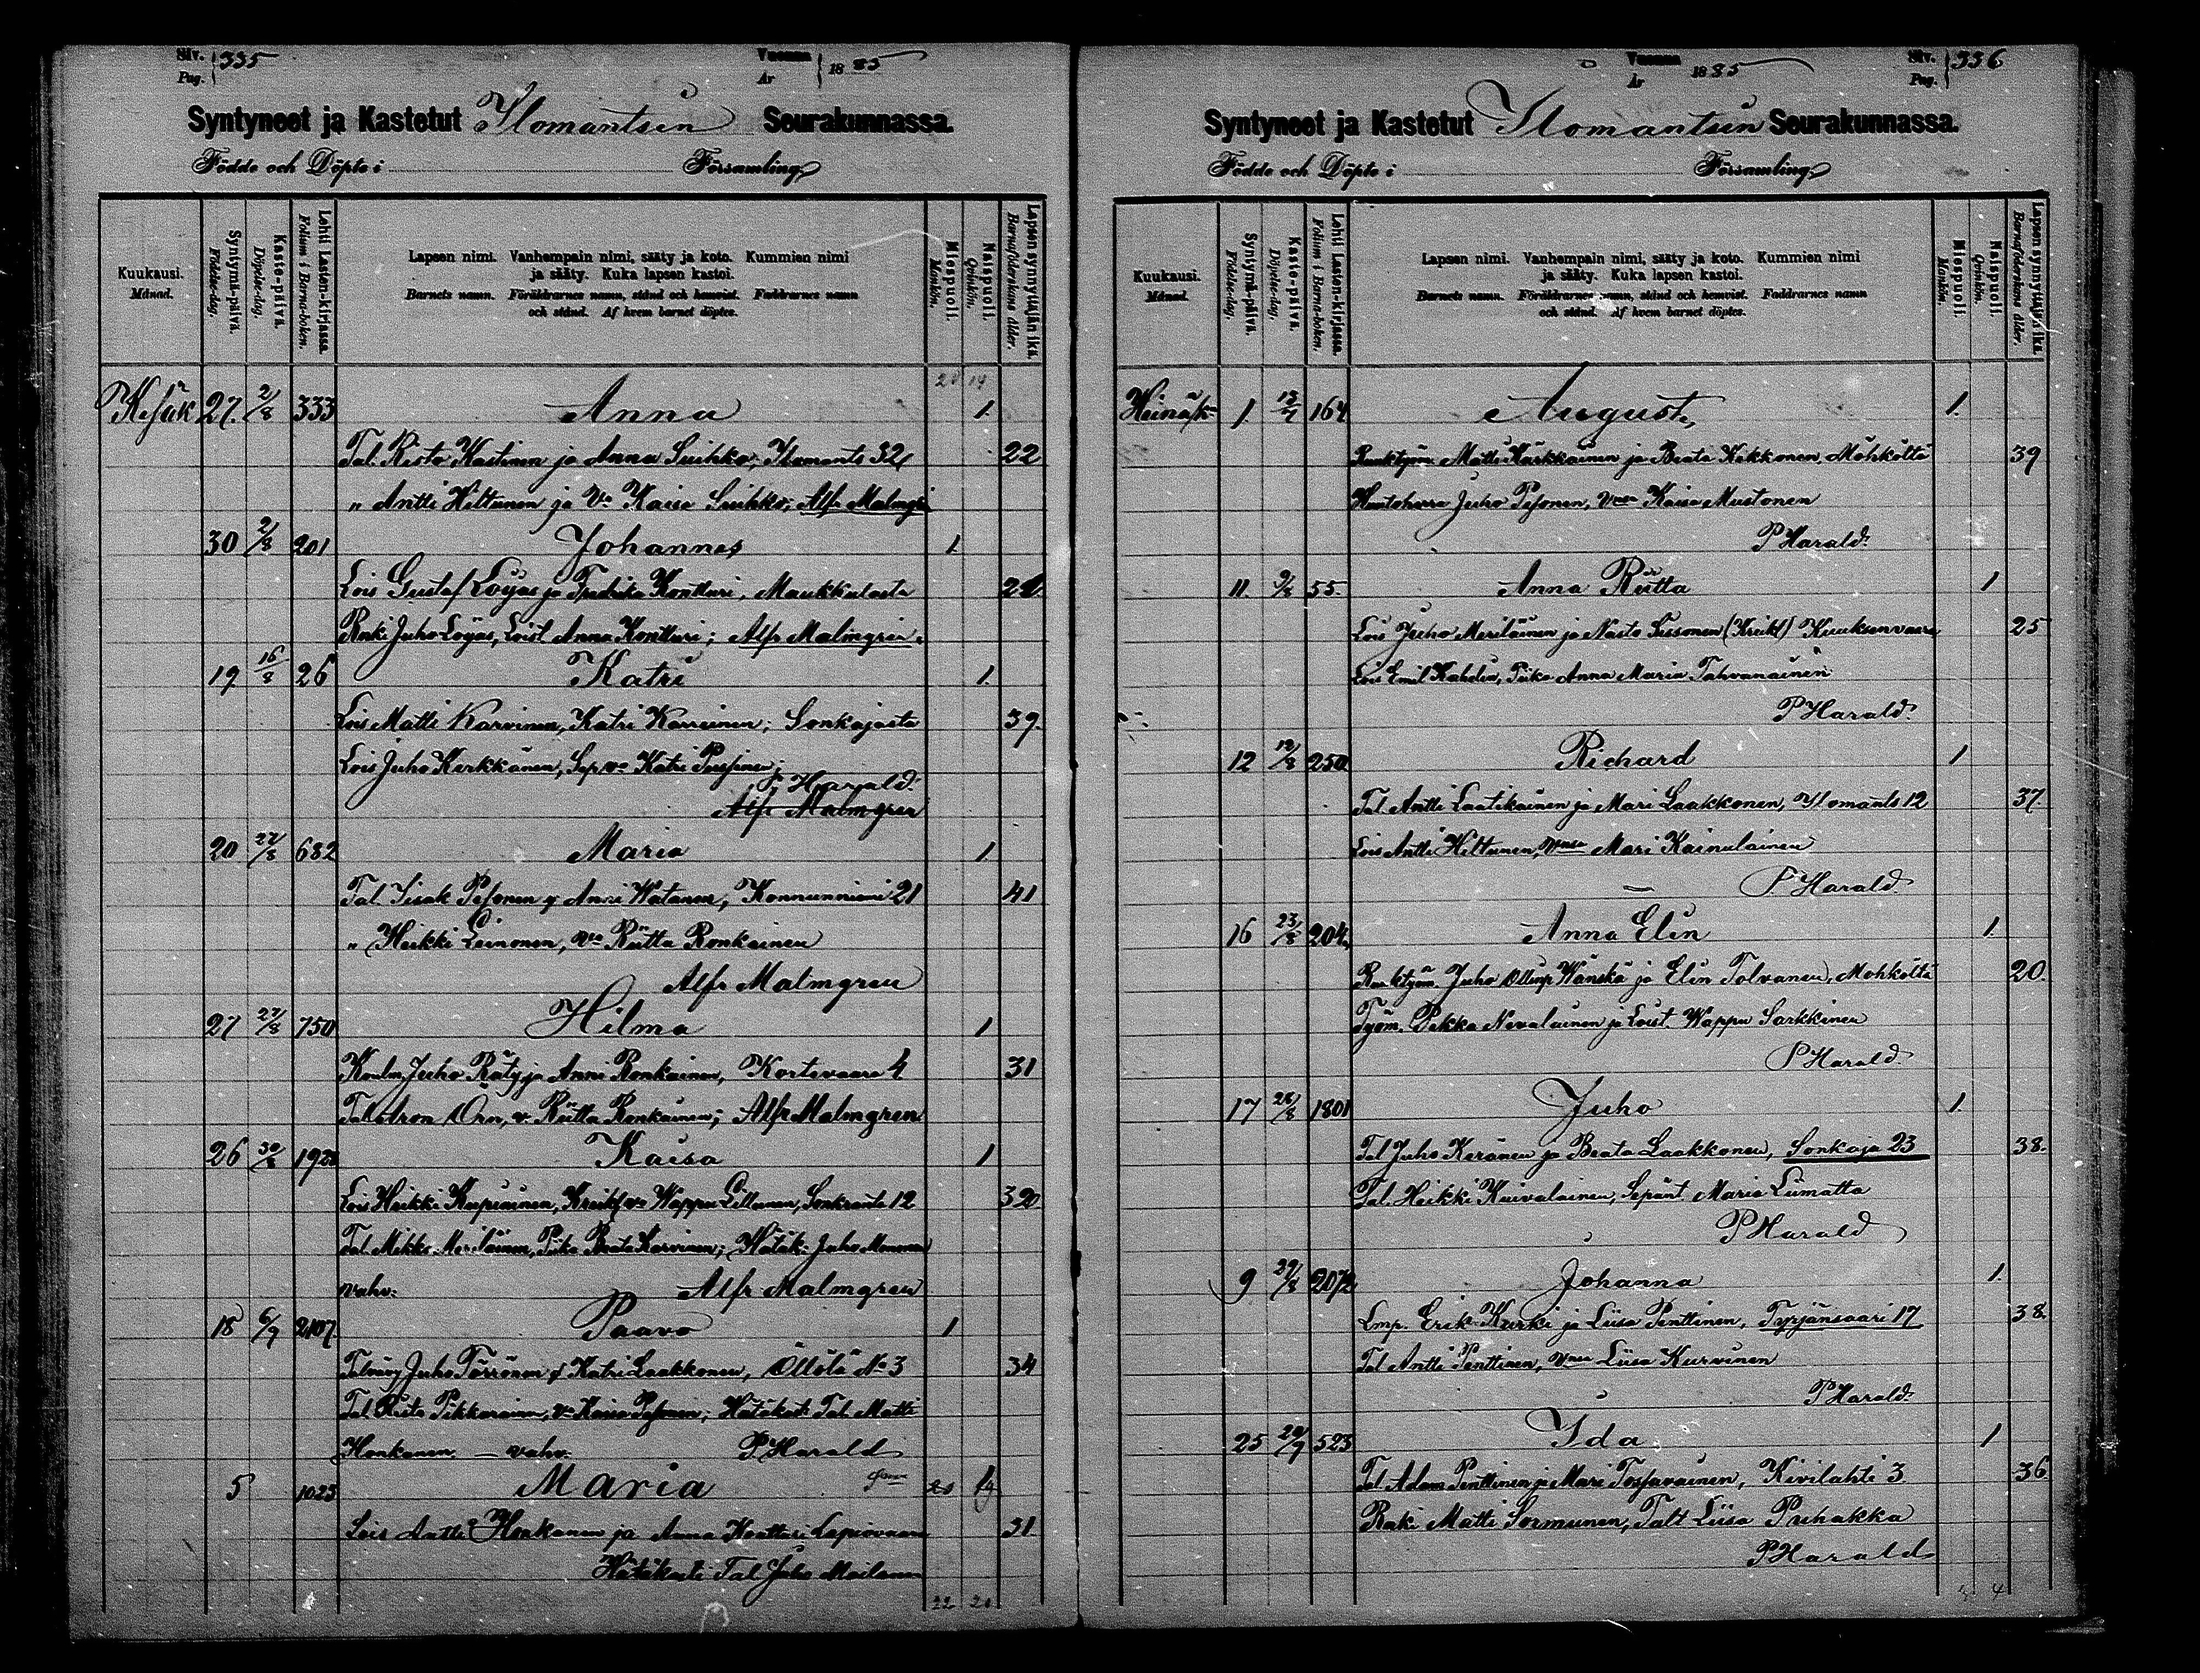 Siv. Pag. 335
Vuonna År 1885
Syntyneet ja Kastetut Ilomantsin Seurakunnassa.
Födde och Döpte i Församling
Kuukausi. Månad.
Syntymä-päivä. Födelse-dag.
Kaste-päivä. Döpelse-dag.
Lehti Lasten-kirjassa. Folium i Barna-boken.
Lapsen nimi. Vanhempain nimi, sääty ja koto. Kummien nimi
ja sääty. Kuka lapsen kastoi.
Barnets namn. Föräldrarnes namn, stånd och hemvist. Faddrarnes namn
och stånd. Af hvem barnet döptes.
Miespuoli. Mankön.
Naispuoli. Qvinkön.
Lapsen synnyttäjän ikä. Barnaföderskans ålder.
Kesäk 27. 2/8 333 Anna 1.
Tal. Risto Kastinen ja Anna Suihko, Ilomants 32 22
" Antti Hiltunen ja Vo Kaisa Suihko; Alfr Malmgr
30 2/8 201 Johannes 1.
Lois Gustaf Löyas ja Fredrika Kontturi, Maukkulasta
Renki Juho Löyas, Loist. Anna Kontturi; Alfr Malmgren.
19 16/8 26 Katri 1.
Lois Matti Karvinen, Katri Karvinen; Sonkajasta 39.
Lois Juho Kerkkänen, Sep. vo Katri
P Harald.
Alfr Malmgren
20 22/8 682 Maria 1.
Tal. Iisak Pesonen o Anni Watanen, Konnunniemi 21 41
" Heikki Leinonen, Vo Riitta Ronkainen
Alfr Malmgren
27 27/8 750 Hilma 1
Juho Räty ja Anni Ronkainen, Kortevaara 4 31
Tal. Aron Örn, v. Riitta Ronkainen; Alfr Malmgren
26 30/8 Kaisa 1
Lois Heikki Wappu 12
Tal. Mikko Meriläinen, Piika Beata Karvinen; Hätäk. Juho
vahv: Alfr Malmgren
18 6/9 2107. Paavo 1
Juho Törrönen o Katri Laakkonen, Öllölä No 3 34
Tal. Risto Pikkarainen, Vo Kaisa Pesonen; Hätäkast. Tal. Matti
Honkanen. — vahv. P Harald
5 1023 Maria
Lois Antti Honkanen ja Anna Kontturi 31
Hätäkasti Tal. Juho
22 20
Siv. Pag. 336
Vuonna År 1885
Syntyneet ja Kastetut Ilomantsin Seurakunnassa.
Födde och Döpte i Församling
Kuukausi. Månad.
Syntymä-päivä. Födelse-dag.
Kaste-päivä. Döpelse-dag.
Lehti Lasten-kirjassa. Folium i Barna-boken.
Lapsen nimi. Vanhempain nimi, sääty ja koto. Kummien nimi
ja sääty. Kuka lapsen kastoi.
Barnets namn. Föräldrarnes namn, stånd och hemvist. Faddrarnes namn
och stånd. Af hvem barnet döptes.
Miespuoli. Mankön.
Naispuoli. Qvinkön.
Lapsen synnyttäjän ikä. Barnaföderskans ålder.
Heinäk 1. 164 August, 1.
Ruuktyöm Matti Kärkkäinen ja Beata Kekkonen, Möhköltä 39
Juho Pesonen, Vmsa Kaisa Mustonen
P Harald.
11. 9/8 55. Anna Riitta 1
Lois Juho Meriläinen ja Nasto Sissonen (Kreikl) Kuuksenvaara 25
Lois Emil Kahelin, Piika Anna Maria Tahvanainen
P Harald.
12 12/8 250 Richard 1
Tal. Antti Laatikainen ja Mari Laakkonen, Ilomants 12 37
Lois Antti Hiltunen, Vmsa Mari Kainulainen
P Harald
16 23/8 204. Anna Elin 1.
Ruuktyöm. Juho Ollinp. Wänskä ja Elin Tolvanen, Möhköltä 20.
Työm. Pekka Nevalainen ja Loist. Wappu Sarkkinen
P Harald.
17 28/8 1801 Juho 1.
Tal Juho Keränen ja Beata Laakkonen, Sonkaja 23 38.
Tal. Heikki Kuivalainen, Sepänt Maria Liimatta
P Harald
9 29/8 2072 Johanna 1.
Lmp. Erik Kurki ja Liisa Penttinen, Tyrjänsaari 17 38.
Tal Antti Penttinen, Vmsa Liisa Kurvinen
P Harald.
25 20/9 523 Ida 1
Tal Adam Penttinen ja Mari Tossavainen, Kivilahti 3 36
Renki Matti Sormunen, Talt Liisa Puhakka
P Harald
4